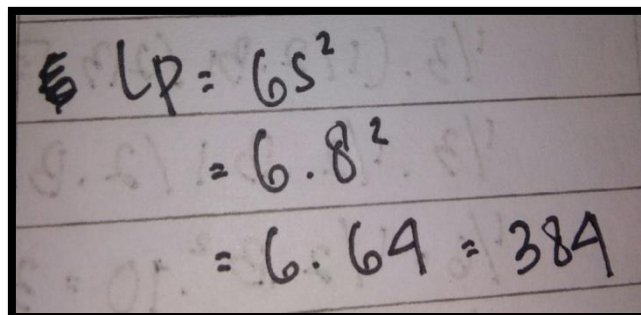 Lp = 6s²
= 6.8²
= 6.64 = 384